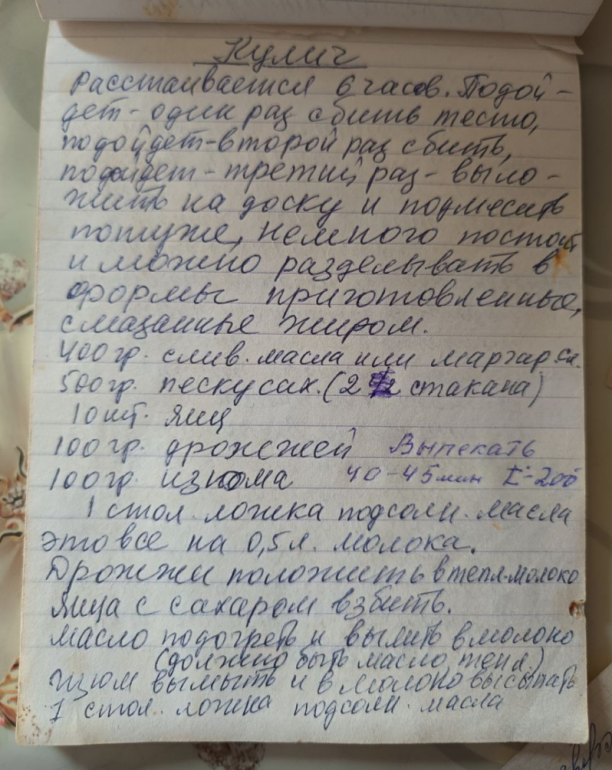 Кулич
расстаивается 6 часов. Подой-
дет - один раз сбить тесто,
подойдет - второй раз сбить,
подойдет - третий раз - выло-
жить на доску и подмесить
потуже, немного постоит
и можно разделывать в
формы приготовленные,
смазанные жиром.
400 гр. слив. масла или маргар. сл.
500гр. песку сах. (2 1/2 стакана)
10 шт. яиц
100гр. дрожжей Выпекать
100гр. изюма 40-45 мин t-200
1 стол. ложка подсолн. масла
это все на 0,5л. молока.
Дрожжи положить в тепл. молоко
Яица с сахаром взбить.
Масло подогреть и вылить в молоко
(должно быть масло тепл.)
Изюм вымыть и в молоко высыпать
1 стол. ложка подсолн. масла